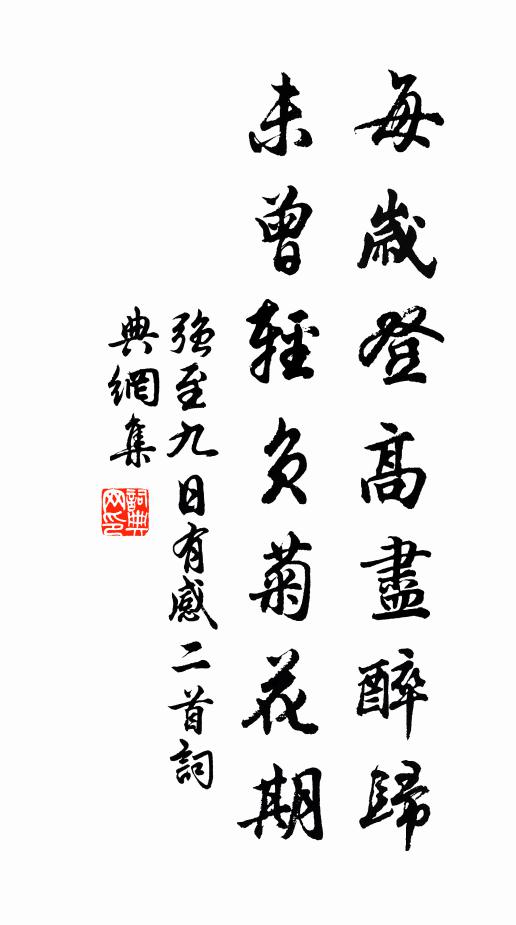 每歲登高盡醉歸
未曾輕負菊花期
強至九日有感二首詞
典網集
詞典網印